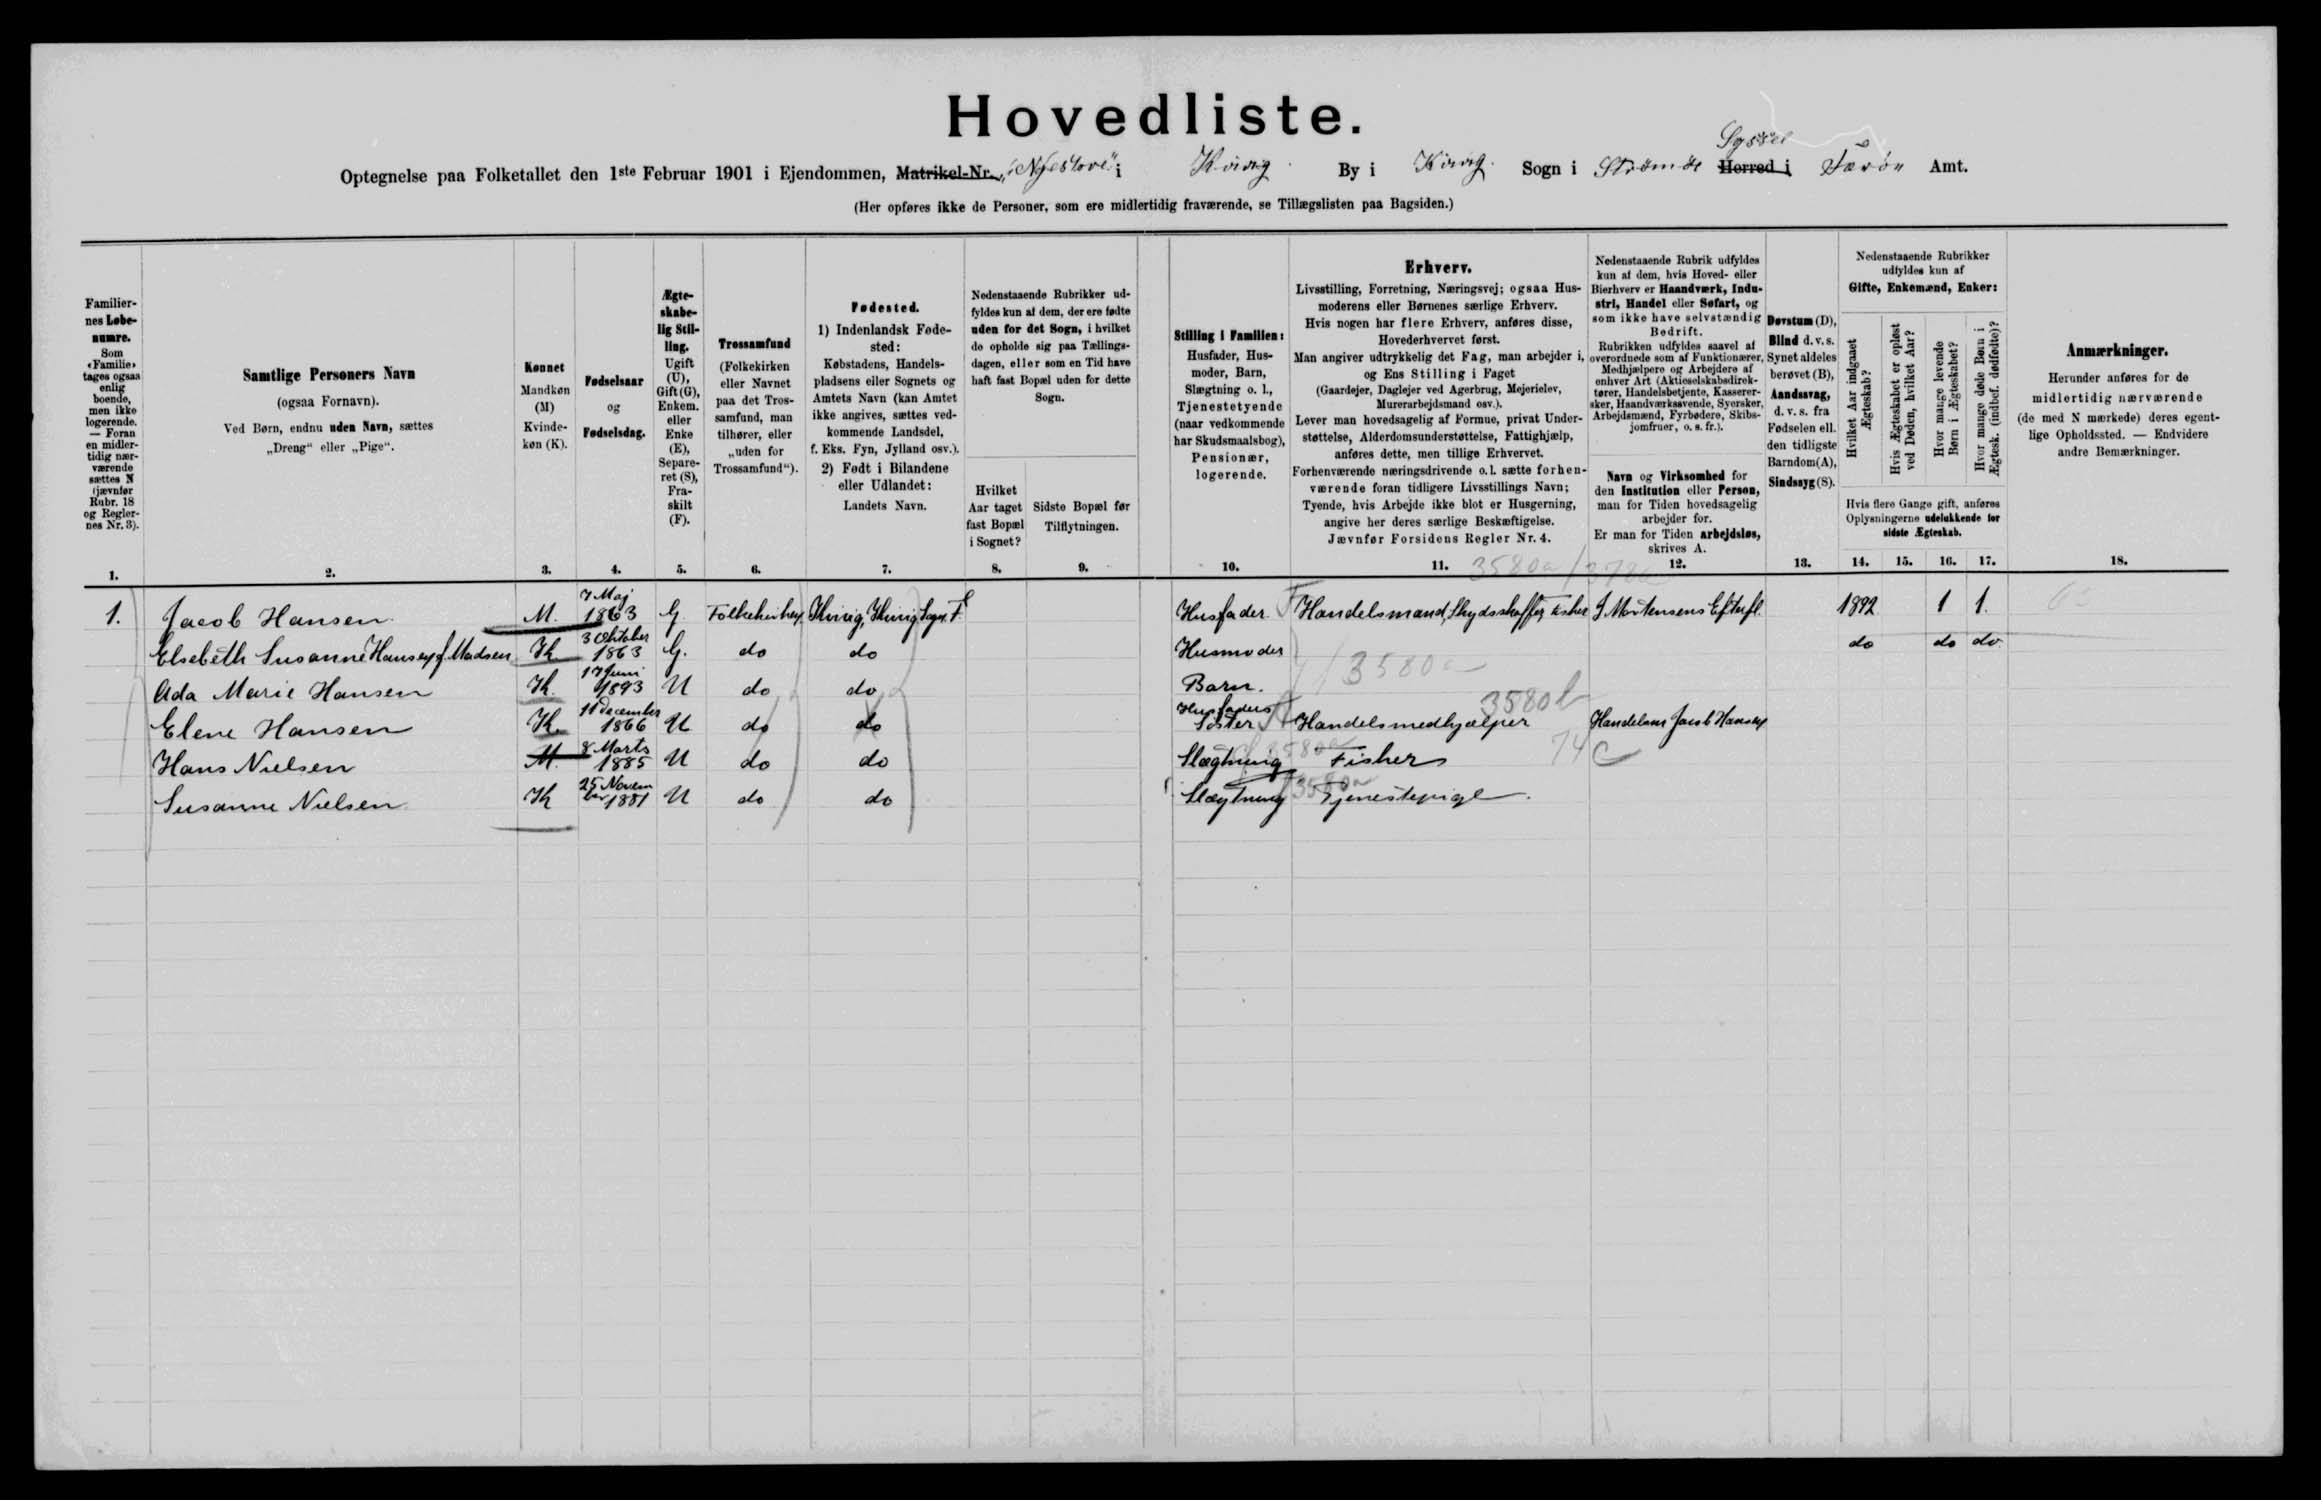 Hovedliste.
Optegnelse paa Folketallet den 1ste Februar 1901 i Ejendommen, Matrikel-Nr. „Nyestove" i Kvivig By i Kvivig Sogn i Strømø Syssel Herred i Færöe Amt.
(Her opføres ikke de Personer, som ere midlertidig fraværende, se Tillægslisten paa Bagsiden.)
Familier-
nes Løbe-
numre.
Som
«Familie»
tages ogsaa
enlig
boende,
men ikke
logerende.
— Foran
en midler-
tidig nær-
værende
sættes N
(jævnfør
Rubr. 18
og Regler-
nes Nr. 3).
1.
Samtlige Personers Navn
(ogsaa Fornavn).
Ved Børn, endnu uden Navn, sættes
„Dreng" eller „Pige".
2.
Kønnet
Mandkøn
(M)
Kvinde-
køn (K).
3.
Fødselsaar
og
Fødselsdag.
4.
Ægte-
skabe-
lig Stil-
ling.
Ugift
(U),
Gift (G),
Enkem.
eller
Enke
(E),
Separe-
ret (S),
Fra-
skilt
(F).
5.
Trossamfund
(Folkekirken
eller Navnet
paa det Tros-
samfund, man
tilhører, eller
„uden for
Trossamfund").
6.
Fødested.
1) Indenlandsk Føde-
sted:
Købstadens, Handels-
pladsens eller Sognets og
Amtets Navn (kan Amtet
ikke angives, sættes ved-
kommende Landsdel,
f. Eks. Fyn, Jylland osv.).
2) Født i Bilandene
eller Udlandet:
Landets Navn.
7.
Nedenstaaende Rubrikker ud-
fyldes kun af dem, der ere fødte
uden for det Sogn, i hvilket
de opholde sig paa Tællings-
dagen, eller som en Tid have
haft fast Bopæl uden for dette
Sogn.
Hvilket
Aar taget
fast Bopæl
i Sognet?
8.
Sidste Bopæl før
Tilflytningen.
9.
Stilling i Familien:
Husfader, Hus-
moder, Barn,
Slægtning o. l.,
Tjenestetyende
(naar vedkommende
har Skudsmaalsbog),
Pensionær,
logerende.
10.
Erhverv.
Livsstilling, Forretning, Næringsvej; ogsaa Hus-
moderens eller Børnenes særlige Erhverv.
Hvis nogen har flere Erhverv, anføres disse,
Hovederhvervet først.
Man angiver udtrykkelig det Fag, man arbejder i,
og Ens Stilling i Faget
(Gaardejer, Daglejer ved Agerbrug, Mejerielev,
Murerarbejdsmand osv.).
Lever man hovedsagelig af Formue, privat Under-
støttelse, Alderdomsunderstøttelse, Fattighjælp,
anføres dette, men tillige Erhvervet.
Forhenværende næringsdrivende o. l. sætte forhen-
værende foran tidligere Livsstillings Navn;
Tyende, hvis Arbejde ikke blot er Husgerning,
angive her deres særlige Beskæftigelse.
Jævnfør Forsidens Regler Nr. 4.
11.
Nedenstaaende Rubrik udfyldes
kun af dem, hvis Hoved- eller
Bierhverv er Haandværk, Indu-
stri, Handel eller Søfart, og
som ikke have selvstændig
Bedrift.
Rubrikken udfyldes saavel af
overordnede som af Funktionærer,
Medhjælpere og Arbejdere af
enhver Art (Aktieselskabsdirek-
tører, Handelsbetjente, Kasserer-
sker, Haandværkssvende, Syersker,
Arbejdsmænd, Fyrbødere, Skibs-
jomfruer, o. s. fr.).
Navn og Virksomhed for
den Institution eller Person,
man for Tiden hovedsagelig
arbejder for.
Er man for Tiden arbejdsløs,
skrives A.
12.
Døvstum (D),
Blind d. v. s.
Synet aldeles
berøvet (B),
Aandssvag,
d. v. s. fra
Fødselen ell.
den tidligste
Barndom (A),
Sindssyg (S).
13.
Nedenstaaende Rubrikker
udfyldes kun af
Gifte, Enkemænd, Enker:
Hvilket Aar indgaaet
Ægteskab?
Hvis Ægteskabet er opløst
ved Døden, hvilket Aar?
Hvor mange levende
Børn i Ægteskabet?
Hvor mange døde Børn i
Ægtesk. (indbef. dødfødte)?
Hvis flere Gange gift, anføres
Oplysningerne udelukkende for
sidste Ægteskab.
14. 15. 16. 17.
Anmærkninger.
Herunder anføres for de
midlertidig nærværende
(de med N mærkede) deres egent-
lige Opholdssted. — Endvidere
andre Bemærkninger.
18.
3580a / 378a
1. Jacob Hansen M. 7 Maj 1863 G Folkekirken Kvivig, Kvivig Sogn. F. Husfader Handelsmand, Skydsskaffer, Fisker J Mortensens Efterfl. 1892 1 1.
Elsebeth Susanne Hansen f. Madsen K 3 Oktober 1863 G. do do Husmoder do do do
3580a
Ada Marie Hansen K. 17 Juni 1893 U do do Barn.
3580b
Elene Hansen K. 11 December 1866 U do do Husfaders Søster Handelsmedhjælper Handelsm Jacob Hansen
Hans Nielsen M. 8 Marts 1885 U do do Slægtning 3580a Fisker 74 C
Susanne Nielsen K 25 Novem ber 1881 U do do Slægtning 3580a Tjenestepige.